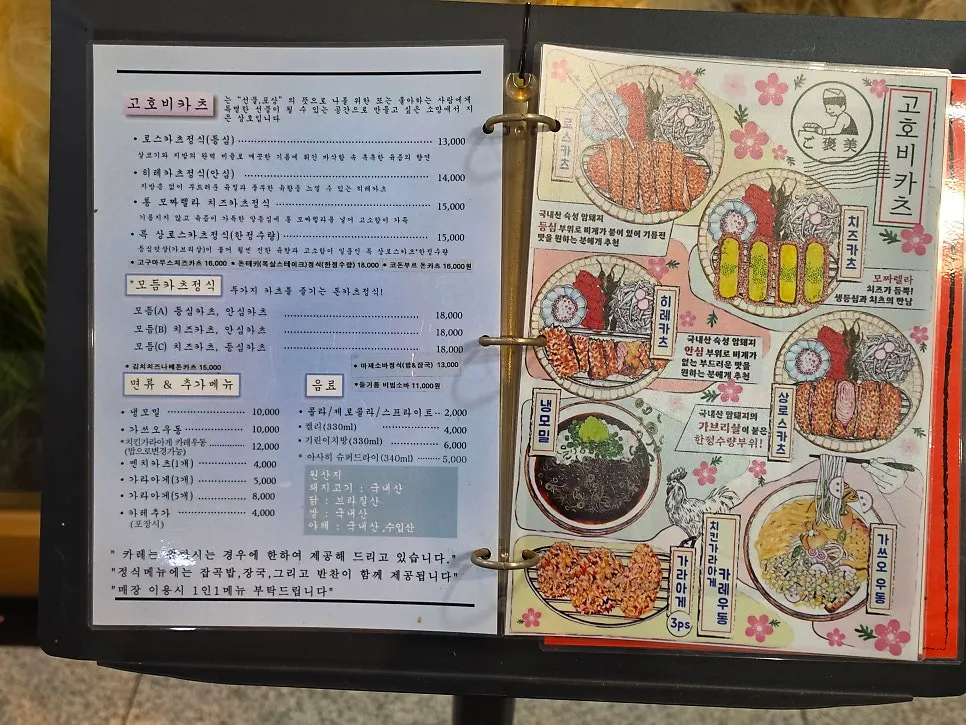 고호비카츠
는 "선물,포상" 의 뜻으로 나를 위한 또는 좋아하는 사람에게
특별한 선물이 될 수 있는 공간으로 만들고 싶은 소망에서 지
은 상호입니다
• 로스카츠정식(등심) 13,000
살코기와 지방의 완벽 비율로 깨끗한 기름에 튀긴 바삭함 속 촉촉한 육즙의 향연
• 히레카츠정식(안심) 14,000
지방층 없이 부드러운 육질과 풍부한 육향을 느낄 수 있는 히레카츠
• 통 모짜렐라 치즈카츠정식 15,000
기름지지 않고 육즙이 가득한 생등심에 통 모짜렐라를 넣어 고소함이 가득
• 특 상로스카츠정식(한정수량) 15,000
등심덧살(가브리살)이 붙어 훨씬 진한 육향과 고소함이 일품인 특 상로스카츠*한정수량
• 고구마무스치즈카츠 16,000 • 돈테키(목살스테이크)정식(한정수량) 18,000 • 코돈부르 돈카츠 16,000원
*모듬카츠정식
두가지 카츠를 즐기는 돈카츠정식!
모듬(A) 등심카츠, 안심카츠 18,000
모듬(B) 치즈카츠, 안심카츠 18,000
모듬(C) 치즈카츠, 등심카츠 18,000
• 김치치즈나베돈카츠 15,000
• 마제소바정식(밥&장국) 13,000
면류 & 추가메뉴
• 냉모밀 10,000
• 가쓰오우동 10,000
*치킨가라아게 카레우동 12,000
(밥으로변경가능)
• 멘치카츠(1개) 4,000
• 가라아게(3개) 5,000
• 가라아게(5개) 8,000
• 카레추가 4,000
(포장시)
음료
•들기름 비빔소바 11,000원
• 콜라/제로콜라/스프라이트 2,000
• 켈리(330ml) 4,000
• 기린이치방(330ml) 6,000
* 아사히 슈퍼드라이(340ml) 5,000
원산지
돼지고기 : 국내산
닭 : 브라질산
쌀 : 국내산
야채 : 국내산,수입산
" 카레는 시는 경우에 한하여 제공해 드리고 있습니다."
"정식메뉴에는 잡곡밥,장국,그리고 반찬이 함께 제공됩니다"
"매장 이용시 1인1메뉴 부탁드립니다"
고호비카츠
ご褒美
로스카츠
국내산 숙성 암돼지
등심 부위로 비계가 붙어 있어 기름진
맛을 원하는 분에게 추천
치즈카츠
모짜렐라
치즈가 듬뿍!
생등심과 치즈의 만남
히레카츠
국내산 숙성 암돼지
안심 부위로 비계가
없는 부드러운 맛을
원하는 분에게 추천
상로스카츠
국내산 암돼지의
가브리살이 붙은
한정수량부위!
냉모밀
가라아게
3ps
치킨가라아게
카레우동
가쓰오 우동